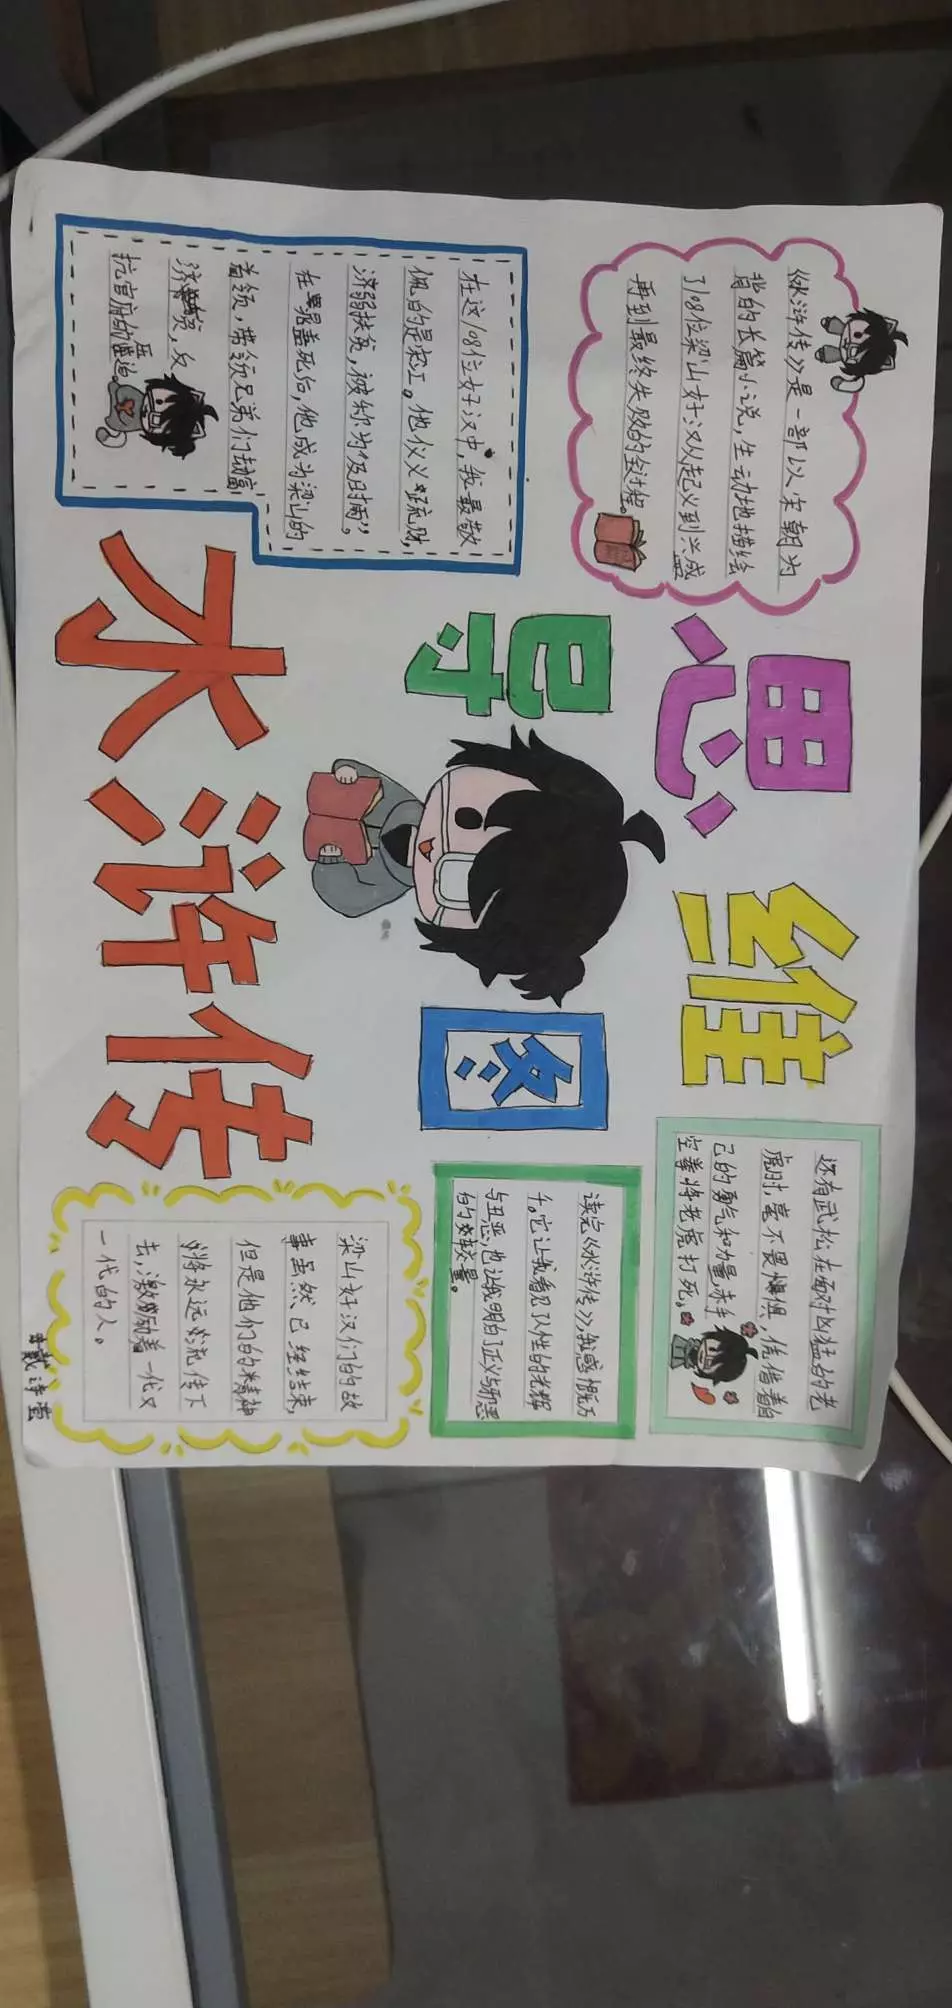 思维
导图
水浒传
《水浒传》是一部以宋朝为
背的长篇小说,生动地描绘
了108位梁山好汉从起义到兴盛
再到最终失败的全过程。
在这108位好汉中,我最敬
佩的是宋江。他仪义疏财,
济弱扶贫,被称为“及时雨”,
在晁盖死后,他成为梁山的
首领,带领兄弟们劫富
济贫,反
抗官府的压迫。
还有武松在面对凶猛的老
虎时,毫不畏惧,凭借着自
己的勇气和力量,赤手
空拳将老虎打死。
读完《水浒传》,我感慨万
千。它让我看见了人性的光辉
与丑恶,也让我明白了正义与邪恶
的较量。
梁山好汉们的故
事虽然已经结束,
但是他们的精神
将永远流传下
去,激励着一代又
一代的人。